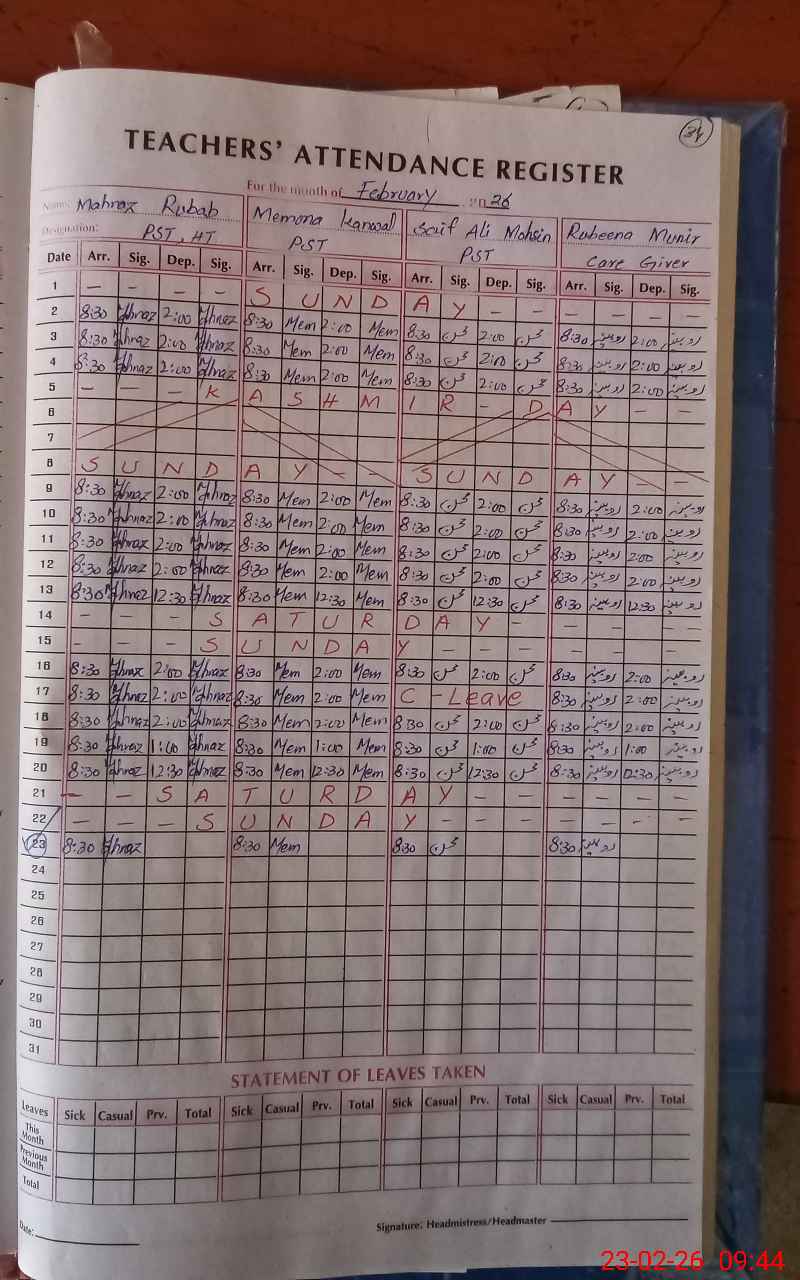 34
TEACHERS' ATTENDANCE REGISTER
For the month of February 2026
Name: Mahnaz Rubab Memona Kanwal Saif Ali Mohsin Rubeena Munir
Designation: PST, HT PST PST Care Giver
Date Arr. Sig. Dep. Sig. Arr. Sig. Dep. Sig. Arr. Sig. Dep. Sig. Arr. Sig. Dep. Sig.
1 — — — — S U N D A Y — — — — — —
2 8:30 Mhnaz 2:00 Mhnaz 8:30 Mem 2:00 Mem 8:30 محسن 2:00 محسن 8:30 روبینہ 2:00 روبینہ
3 8:30 Mhnaz 2:00 Mhnaz 8:30 Mem 2:00 Mem 8:30 محسن 2:00 محسن 8:30 روبینہ 2:00 روبینہ
4 8:30 Mhnaz 2:00 Mhnaz 8:30 Mem 2:00 Mem 8:30 محسن 2:00 محسن 8:30 روبینہ 2:00 روبینہ
5 — — — K A S H M I R — D A Y —
6
7
8 S U N D A Y — — S U N D A Y — —
9 8:30 Mhnaz 2:00 Mhnaz 8:30 Mem 2:00 Mem 8:30 محسن 2:00 محسن 8:30 روبینہ 2:00 روبینہ
10 8:30 Mhnaz 2:00 Mhnaz 8:30 Mem 2:00 Mem 8:30 محسن 2:00 محسن 8:30 روبینہ 2:00 روبینہ
11 8:30 Mhnaz 2:00 Mhnaz 8:30 Mem 2:00 Mem 8:30 محسن 2:00 محسن 8:30 روبینہ 2:00 روبینہ
12 8:30 Mhnaz 2:00 Mhnaz 8:30 Mem 2:00 Mem 8:30 محسن 2:00 محسن 8:30 روبینہ 2:00 روبینہ
13 8:30 Mhnaz 12:30 Mhnaz 8:30 Mem 12:30 Mem 8:30 محسن 12:30 محسن 8:30 روبینہ 12:30 روبینہ
14 — — — S A T U R D A Y — — — — —
15 — — — S U N D A Y — — — — — — —
16 8:30 Mhnaz 2:00 Mhnaz 8:30 Mem 2:00 Mem 8:30 محسن 2:00 محسن 8:30 روبینہ 2:00 روبینہ
17 8:30 Mhnaz 2:00 Mhnaz 8:30 Mem 2:00 Mem C - Leave 8:30 روبینہ 2:00 روبینہ
18 8:30 Mhnaz 2:00 Mhnaz 8:30 Mem 2:00 Mem 8:30 محسن 2:00 محسن 8:30 روبینہ 2:00 روبینہ
19 8:30 Mhnaz 1:00 Mhnaz 8:30 Mem 1:00 Mem 8:30 محسن 1:00 محسن 8:30 روبینہ 1:00 روبینہ
20 8:30 Mhnaz 12:30 Mhnaz 8:30 Mem 12:30 Mem 8:30 محسن 12:30 محسن 8:30 روبینہ 12:30 روبینہ
21 — — S A T U R D A Y — — — — — —
22 — — — S U N D A Y — — — — — — —
23 8:30 Mhnaz 8:30 Mem 8:30 محسن 8:30 روبینہ
24
25
26
27
28
29
30
31
STATEMENT OF LEAVES TAKEN
Leaves Sick Casual Prv. Total Sick Casual Prv. Total Sick Casual Prv. Total Sick Casual Prv. Total
This Month
Previous Month
Total
Date: Signature: Headmistress/Headmaster
23-02-26 09:44